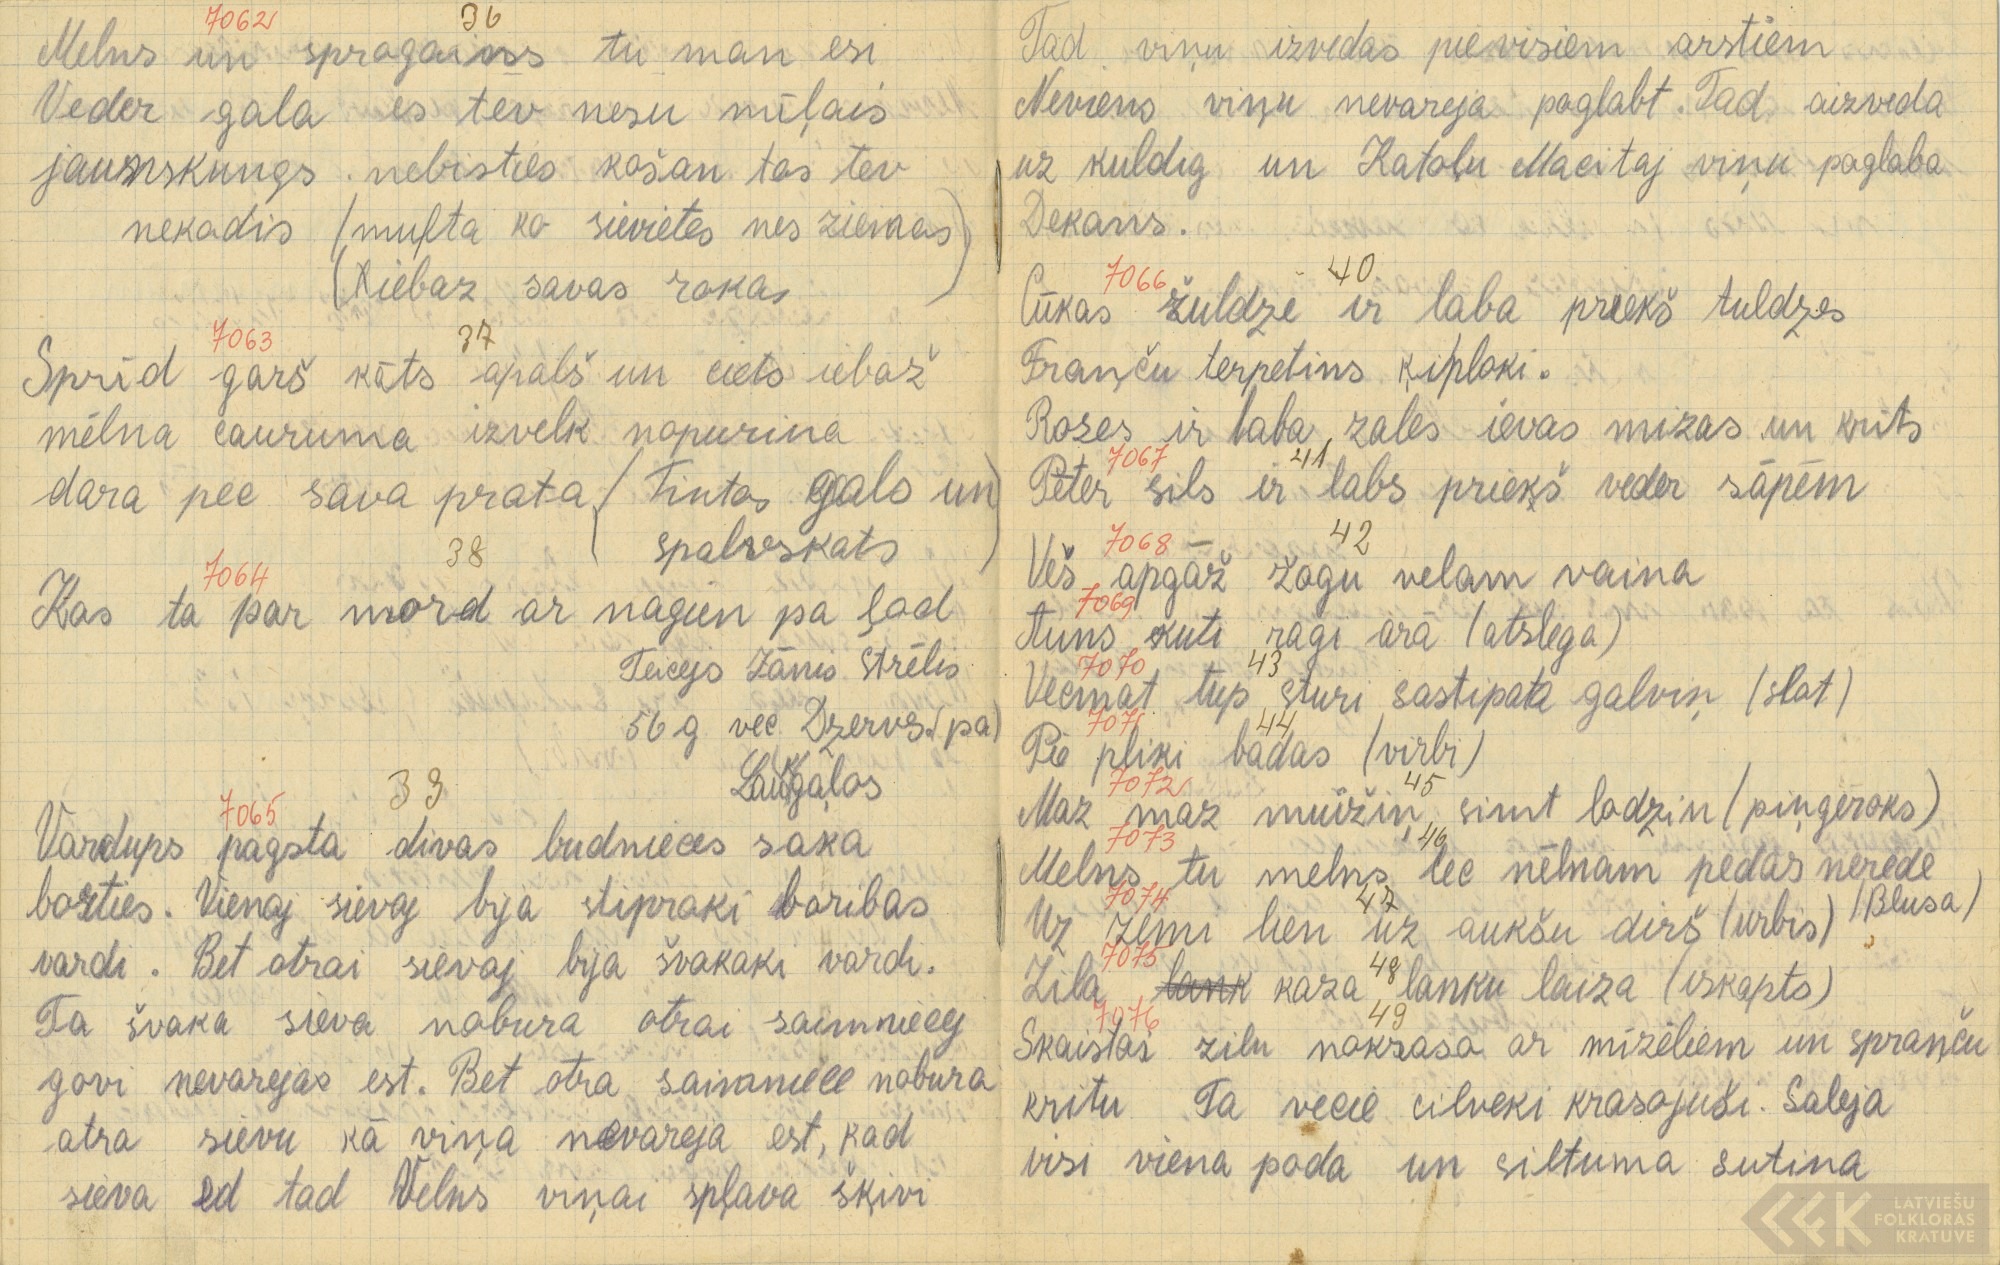 7062 36
Melns un sprogains tu man esi
Veder gala es tev nesu mīļais
jaunskungs nebisties košan tas tev
nekadis (mufta ko sievietes nes ziemas)
(Aiebaz savas rokas)
7063 37
Sprīd garš kāts apalš un ciets iebaž
mēlna cauruma izvelk nopurina
dara pec sava prata (Tintas gals un
spalvskats)
7064 38
Kas ta par mord ar nagien pa ļad
Teicejs Jānis Strēlis
56 g vec Dzervs. (pa)
Laukgaļos
7065 39
Vardups pagsta divas budnieces saka
borties. Vienaj sievaj bija stipraki boribas
vardi. Bet otrai sievaj bija švakaki vardi.
Ta švaka sieva nobura otrai saimniecej
govi nevarejas est. Bet otra saimniece nobura
otra sievu kā viņa nevareja est, kad
sieva ed tad Velns viņai spļava šķivi
Tad viņu izvedas pie visiem arstiem
Neviens viņu nevareja paglabt. Tad aizveda
uz kuldig un Katoļu Macitaj viņu paglaba
Dekans.
7066 40
Cūkas žuldze ir laba priekš tuldzes
Franču terpetins ķiploki.
Rozes ir laba zales ievas mizas un krits
7067 41
Pēter sils ir labs priekš veder sāpēm
7068 42
Vēš apgāž zogu velam vaina
7069
Auns kuti ragi arā (atslega)
7070 43
Vecmat tup sturi sastipata galviņ (slat)
7071 44
Pie pliki badas (virbi)
7072 45
Maz maz muižiņ simt lodzin (piņgeroks)
7073 46
Melns tu melns lec nēlnam pedas nerede
(Blusa)
7074 47
Uz zemi lien uz aukšu dirš (urbis)
7075 48
Zila lank kaza lanku laiza (iskapts)
7076 49
Skaistas zilu nokrasa ar mizēliem un spranču
kritu Ta vecie cilveki krasojuši. Saleja
visi viena poda un siltuma sutina
LATVIEŠU
FOLKLORAS
KRATUVE